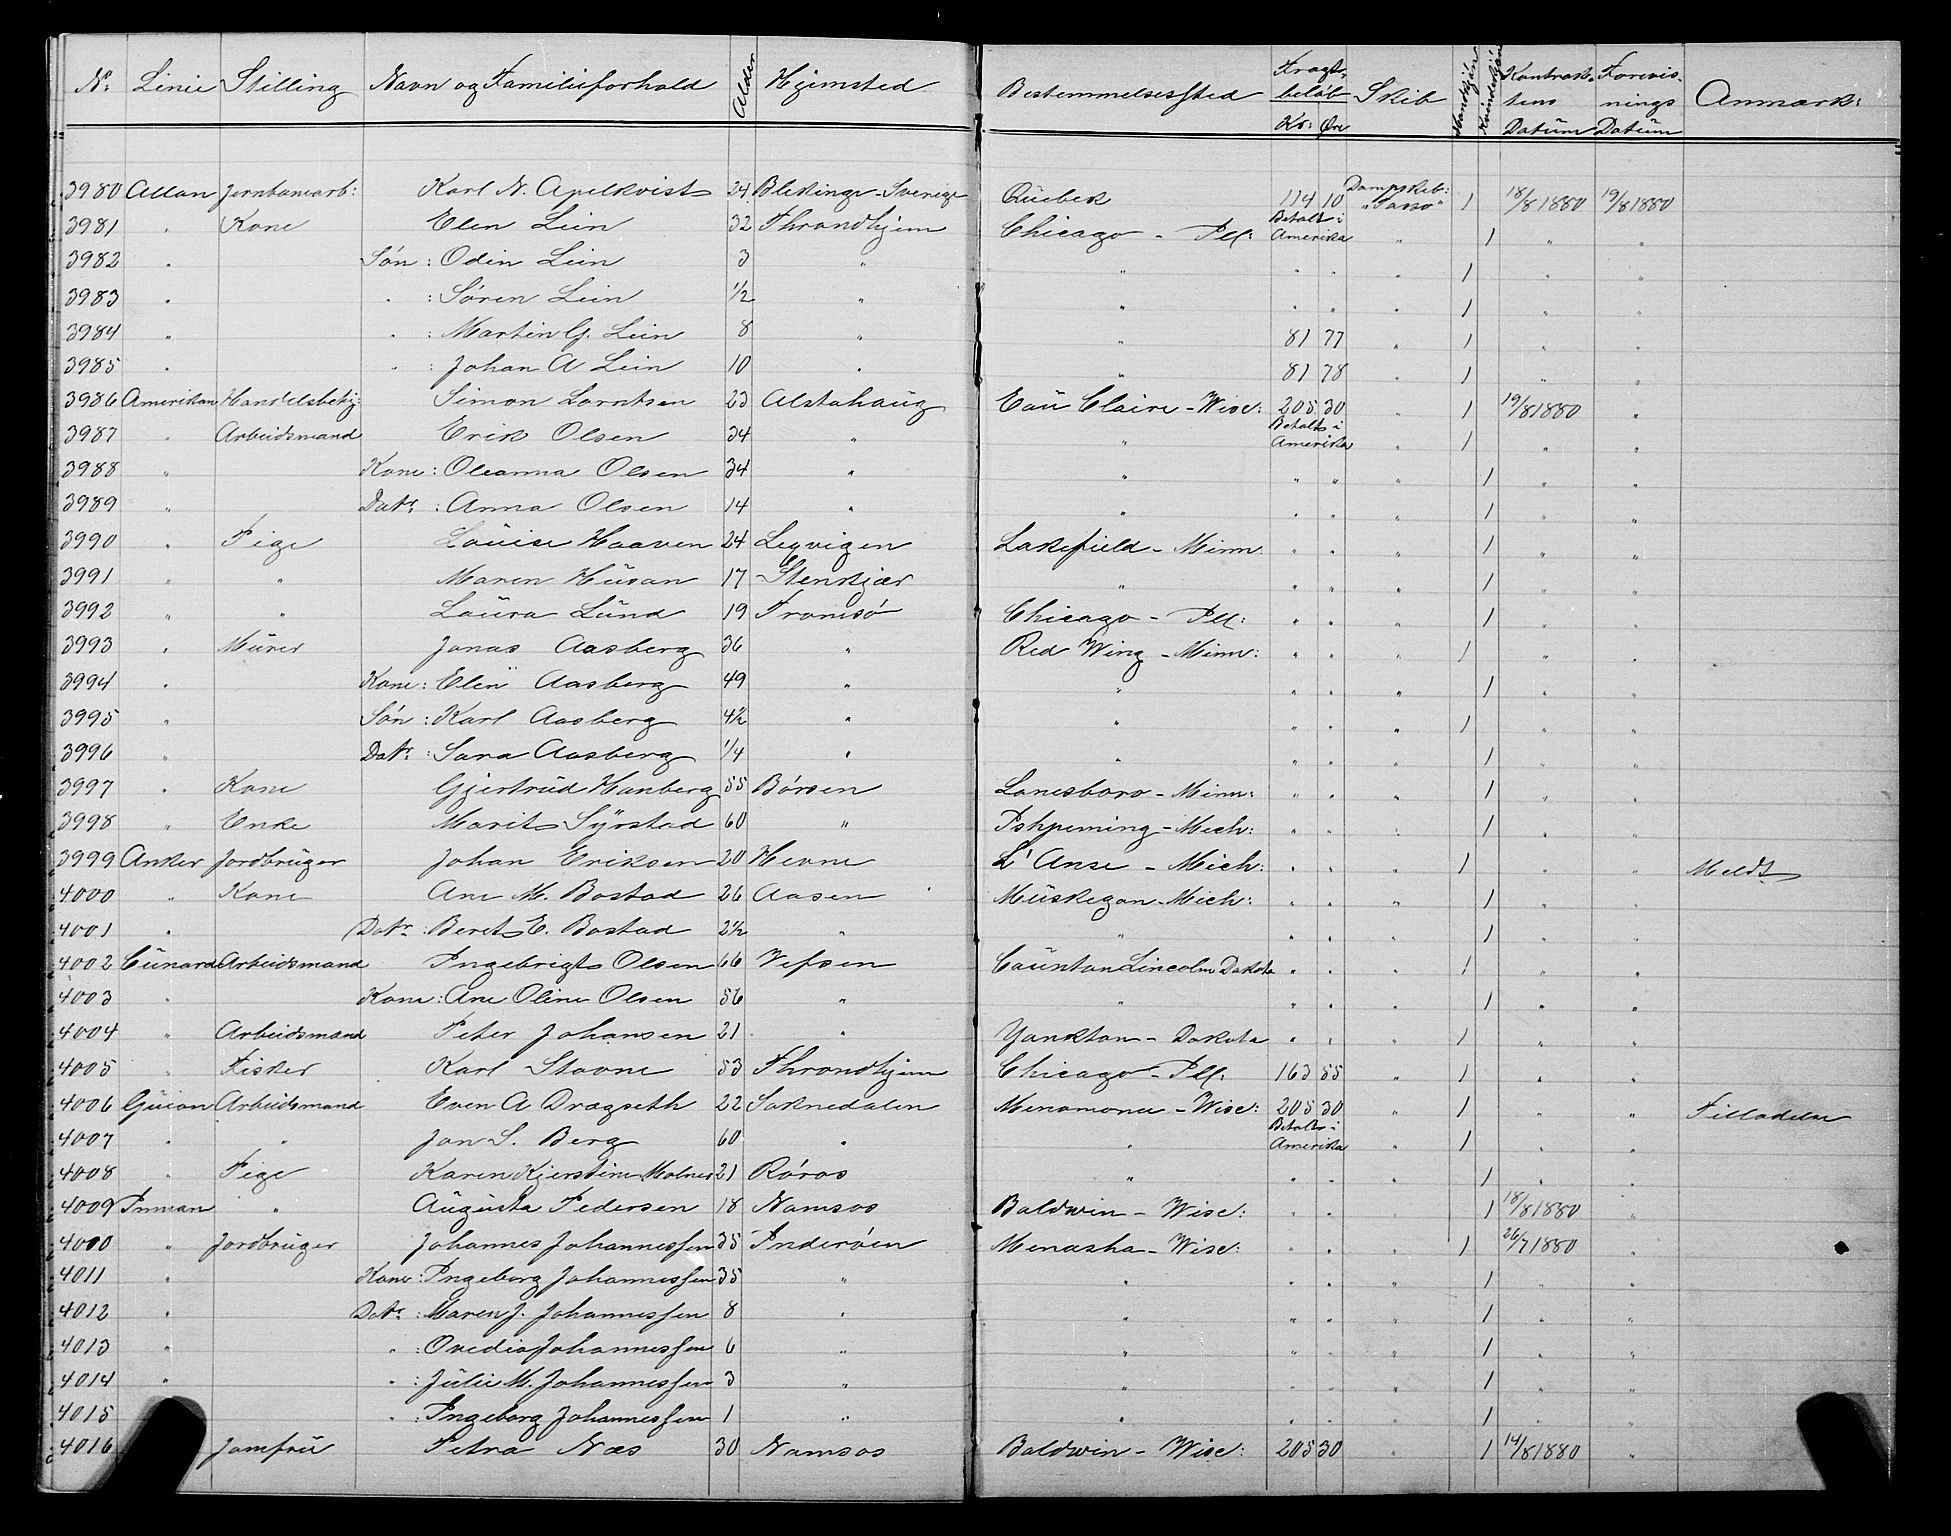 No: Linie Stilling Navn og Familieforhold Alder Hjemsted Bestemmelsessted Fragtbeløb Kr: Øre Skib Mandkjøn Kvindekjøn Kontraktens Datum Forevisnings Datum Anmærk:
3980 Allan Jernbanearb: Karl N. Apelkvist 24 Blekinge-Sverige Quebek 114 10 Dampskib: "Tasso" 1 18/8 1880 19/8 1880
3981 " Kone Elen Lein 32 Throndhjem Chicago - Ill: Betalt i Amerika " 1 " "
3982 " Søn: Odin Lein 3 " " " " " 1 " "
3983 " " : Søren Lein 1/2 " " " " " 1 " "
3984 " " : Martin G. Lein 8 " " 81 77 " 1 " "
3985 " " : Johan A Lein 10 " " 81 78 " 1 " "
3986 Amerikan Handelsbetj: Simon Lorntsen 23 Alstahaug Eau Claire - Wisc: 205 30 " 1 19/8 1880 "
3987 " Arbeidsmand Erik Olsen 34 " " Betalt i Amerika " 1 " "
3988 " Kone: Oleanna Olsen 34 " " " " " 1 " "
3989 " Datr: Anna Olsen 14 " " " " " 1 " "
3990 " Pige Louise Haaven 24 Legvigen Lakefield - Minn " " " 1 " "
3991 " " Maren Husan 17 Stenkjær " " " " 1 " "
3992 " " Laura Lund 19 Tromsø Chicago - Ill: " " " 1 " "
3993 " Murer Jonas Aasberg 36 " Red Wing - Minn: " " " 1 " "
3994 " Kone: Elen Aasberg 49 " " " " " 1 " "
3995 " Søn: Karl Aasberg 4 1/2 " " " " " 1 " "
3996 " Datr: Sara Aasberg 1/4 " " " " " 1 " "
3997 " Kone Gjertrud Hanberg 55 Børsen Lanesboro - Minn: " " " 1 " "
3998 " Enke Marit Syrstad 60 " Ishpeming - Mich: " " " 1 " "
3999 Anker Jordbruger Johan Eriksen 20 Hevne L'Anse - Mich: " " " 1 " " Meldt
4000 " Kone Ane M. Bostad 26 Aasen Muskegon - Mich: " " " 1 " "
4001 " Datr: Beret E. Bostad 2 1/2 " " " " " 1 " "
4002 Cunard Arbeidsmand Ingebrigt Olsen 66 Vefsen Caunton Lincolm Dakota " " " 1 " "
4003 " Kone: Ane Oline Olsen 56 " " " " " 1 " "
4004 " Arbeidsmand Peter Johansen 21 " Yankton - Dakota " " " 1 " "
4005 " Fisker Karl Stavne 53 Throndhjem Chicago - Ill: 163 55 " 1 " "
4006 Guion Arbeidsmand Even A Dragseth 22 Soknedalen Menomone - Wisc: 205 30 " 1 " " Tilladelse
4007 " " Jon S. Berg 60 " " Betalt i Amerika " 1 " "
4008 " Pige Karen Kjerstine Molnes 21 Røros " " " " 1 " "
4009 Inman " Augusta Pedersen 18 Namsos Baldwin - Wisc: " " " 1 18/8 1880 "
4000 " Jordbruger Johannes Johannessen 35 Inderøen Menasha - Wisc: " " " 1 26/7 1880 "
4011 " Kone: Ingeborg Johannessen 35 " " " " " 1 " "
4012 " Datr: Maren J. Johannessen 8 " " " " " 1 " "
4013 " " : Ovedia Johannessen 6 " " " " " 1 " "
4014 " " : Julie M. Johannessen 3 " " " " " 1 " "
4015 " : Ingeborg Johannessen 1 " " " " " 1 " "
4016 Jomfru Petra Næs 30 Namsos Baldwin - Wisc: 205 30 " 1 14/8 1880 "